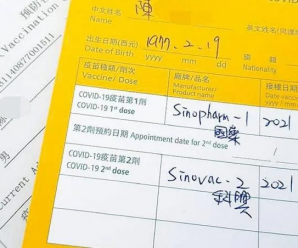 預防
Vaccination
81140877001511
男
Current Ad
中文姓名 陳 英文姓名
Name
出生日期(西元) 1977.2.19
Date of Birth yyyy mm dd
國籍
Nationality
疫苗種類/劑次 廠牌/品名 接種日期
Vaccine/ Dose Manufacturer/
Product name yyyy
COVID-19疫苗第1劑 Sinopharm-1 2021
COVID-19 1st dose 國藥
第2劑預約日期 Appointment date for 2nd dose
COVID-19疫苗第2劑 Sinovac-2 2021
COVID-19 2nd dose 科興